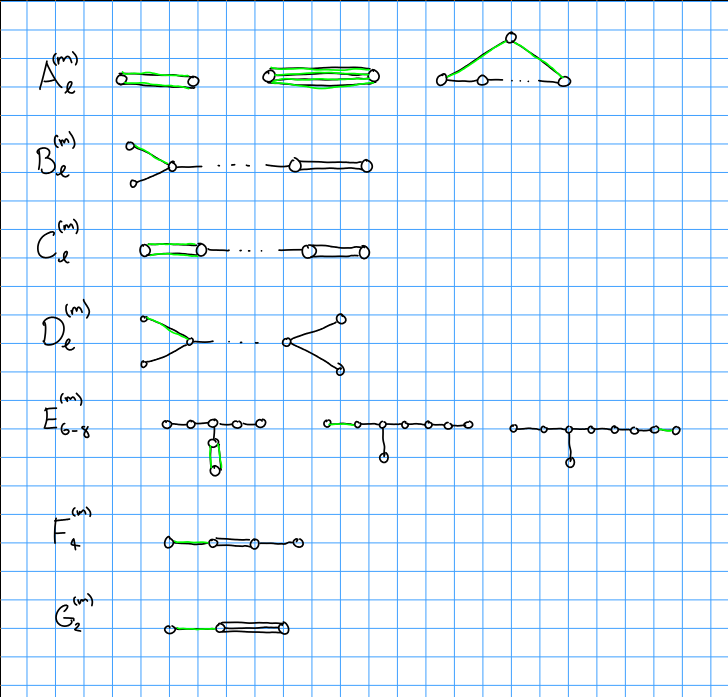 A_ℓ^(m)
B_ℓ^(m)
C_ℓ^(m)
D_ℓ^(m)
E_6-8^(m)
F_4^(m)
G_2^(m)